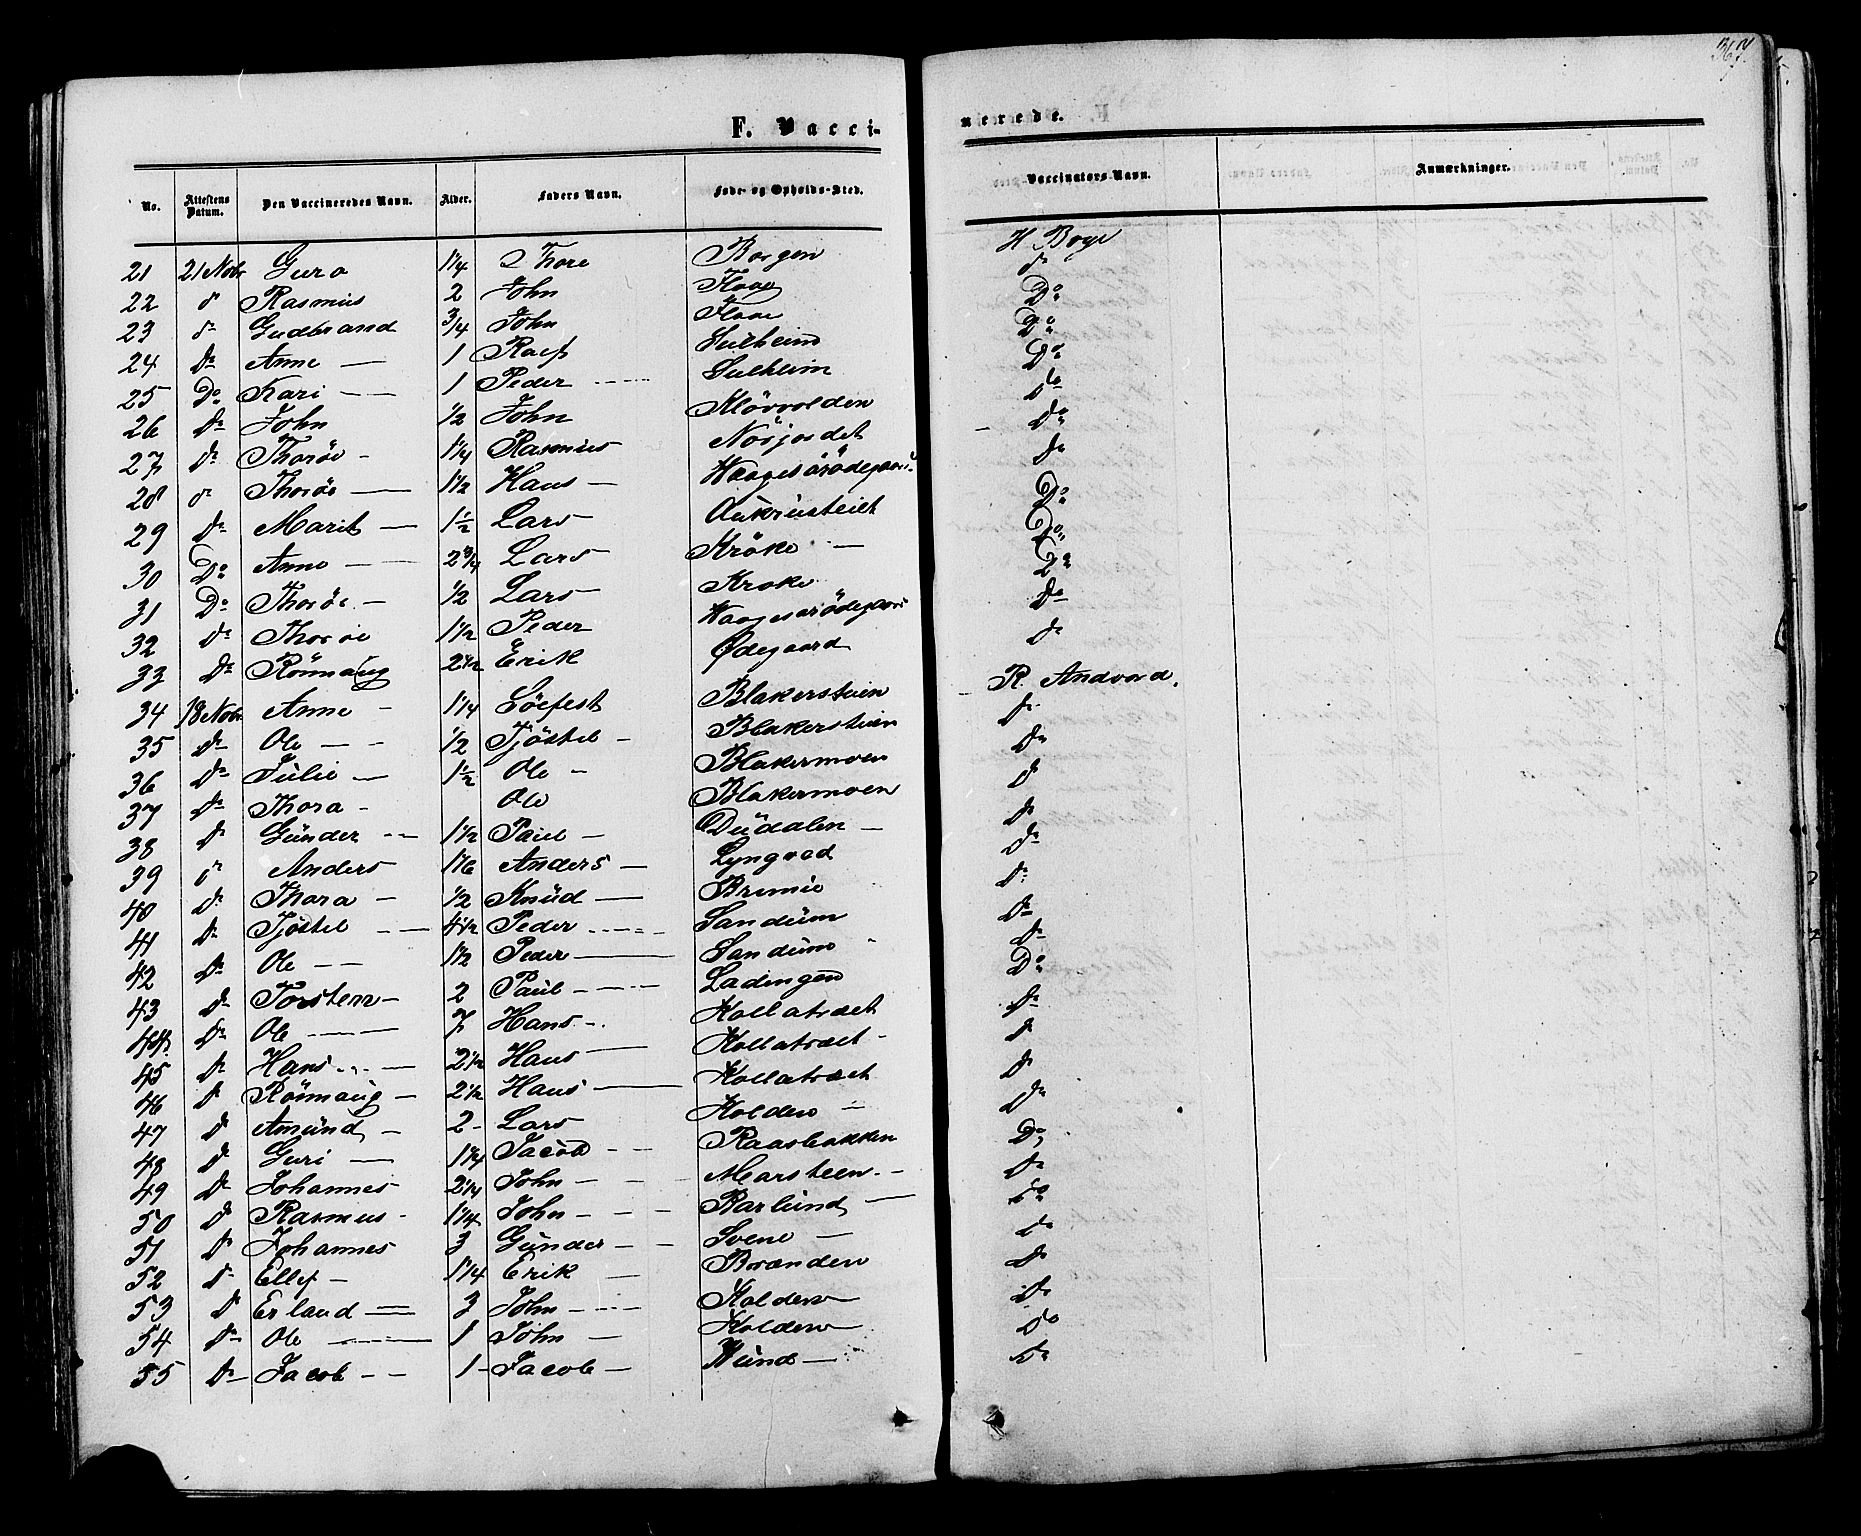 367.
F. Vacci-
nerede.
No. Attestens Datum. Den Vaccineredes Navn. Alder. Faders Navn. Føde- og Opholds-Sted. Vaccinators Navn. Anmærkninger.
21 21 Nobr Guro 1 1/4 Thore Borgen H Boye
22 d° Rasmus 2 John Flaae d°
23 d° Gudbrand 3/4 John Flaae D°
24 D° Anne — 1 Rolf Sulheim D°
25 D° Kari — 1 Peder Sulheim D°
26 D° John 1/2 John Kløvvolden D°
27 D° Thorøe - 1 1/4 Rasmus Nørjordet D°
28 d° Thorøe — 1 1/2 Hans — D°
29 D° Marit — 1 1/2 Lars Aukrusteiet D°
30 D° Anne — 2 3/4 Lars Krøke — D°
31 D° Thorøe — 1/2 Lars Kroke D°
32 D° Thorøe 1 1/2 Peder D°
33 D° Rønnaug 2 1/2 Erik Ødegaard D°
34 18 Nobr Anne - 1 1/4 Søefest Blakersteien R. Andvord.
35 D° Ole — 1/2 Tjøstel - Blakersteien D°
36 D° Julie — 1 1/2 Ole - Blakermoen D°
37 D° Thora - Ole Blakermoen D°
38 D° Günder — 1 1/2 Paül — Düdalen — D°
39 d° Anders 1 1/6 Anders — Lyngved D°
40 D° Thora - 1/2 Knüd — Brimie D°
41 D° Tjøstel — 4 1/2 Peder Sandüm D°
42 D° Ole — 1 1/2 Peder — Sandüm D°
43 D° Torstein - 2 Paül — D°
44 D° Ole — 7 Hans - Kollatræet D°
45 D° Hans — 2 1/2 Hans — Kollatræet - D°
46 D° Rønnaug — 2 1/2 Hans — Kollatræet D°
47 D° Amünd — 2 - Lars Kolden — D°
48 D° Guri — 1 3/4 Jacob — Raasbakken D°
49 D° Johannes 2 1/4 John — Marsteen - D°
50 D° Rasmus - 1 1/4 John — Barlund — D°
51 D° Johannes 3 Günder — Svene — D°
52 D° Ellef - 1 1/4 Erik — Brænden D°
53 D° Erland — 3 John — Kolden D°
54 D° Ole — 1 John — Kolden D°
55 D° Jacob — 1 - Jacob — D°